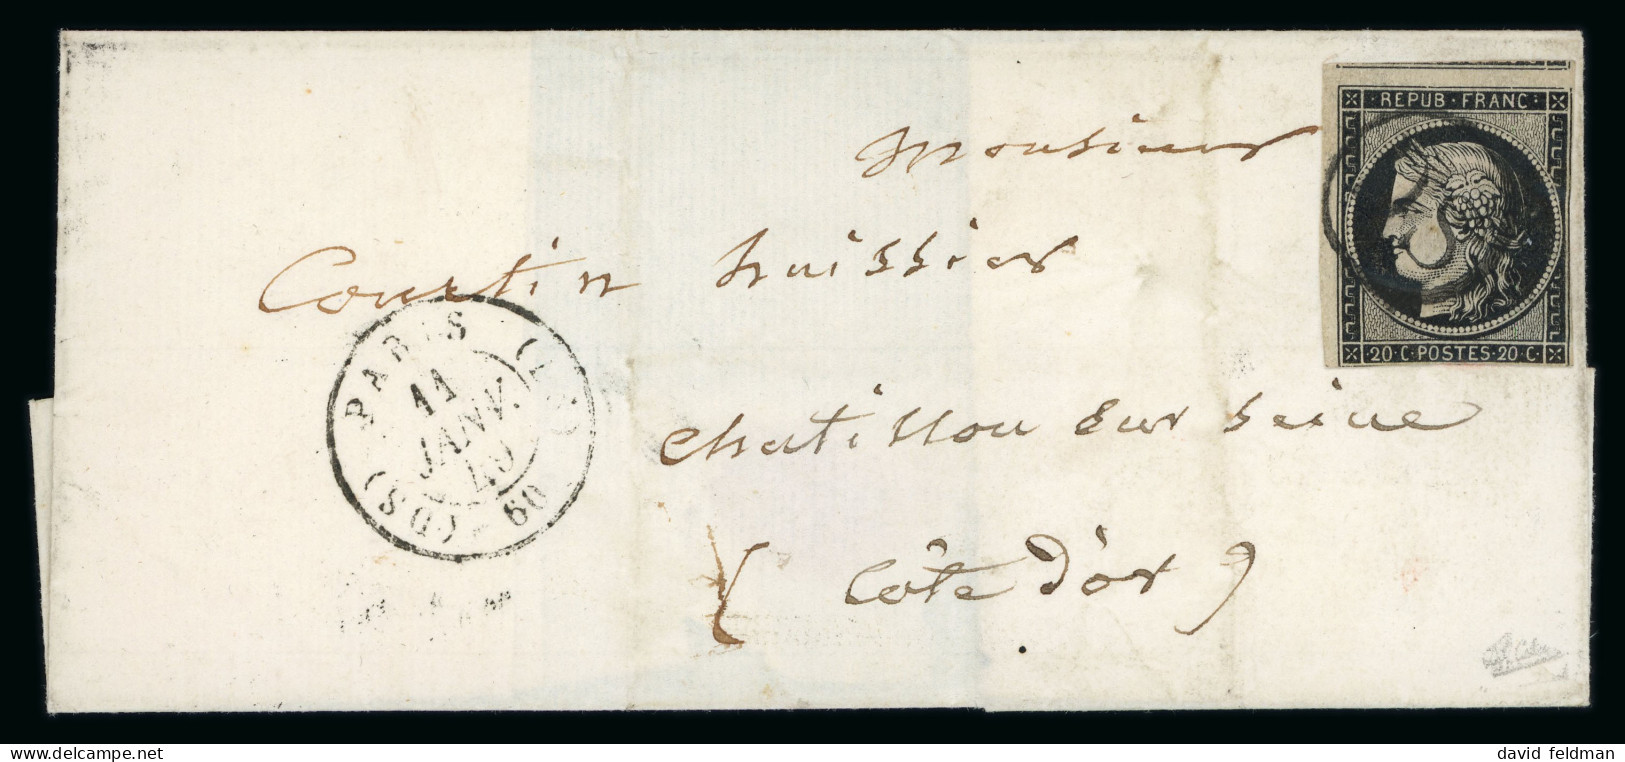 REPUB · FRANC ·
Monsieur
Courtin huissier
PARIS
11
JANV.
49
60
20 · C · POSTES · 20 · C ·
chatillon sur seine
( Côte d'or )
david feldman